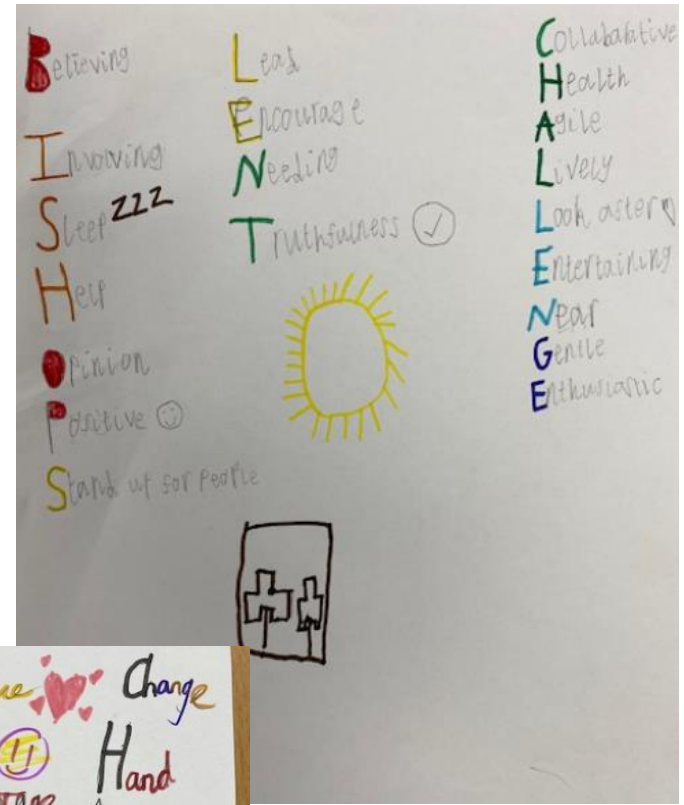 Believing
Involving
Sleep zzz
Help
Opinion
Positive
Stand up for people
Lead
Encourage
Needing
Truthfulness
Collabarative
Health
Agile
Lively
Look after
Entertaining
Near
Gentle
Enthusiastic
Change
Hand